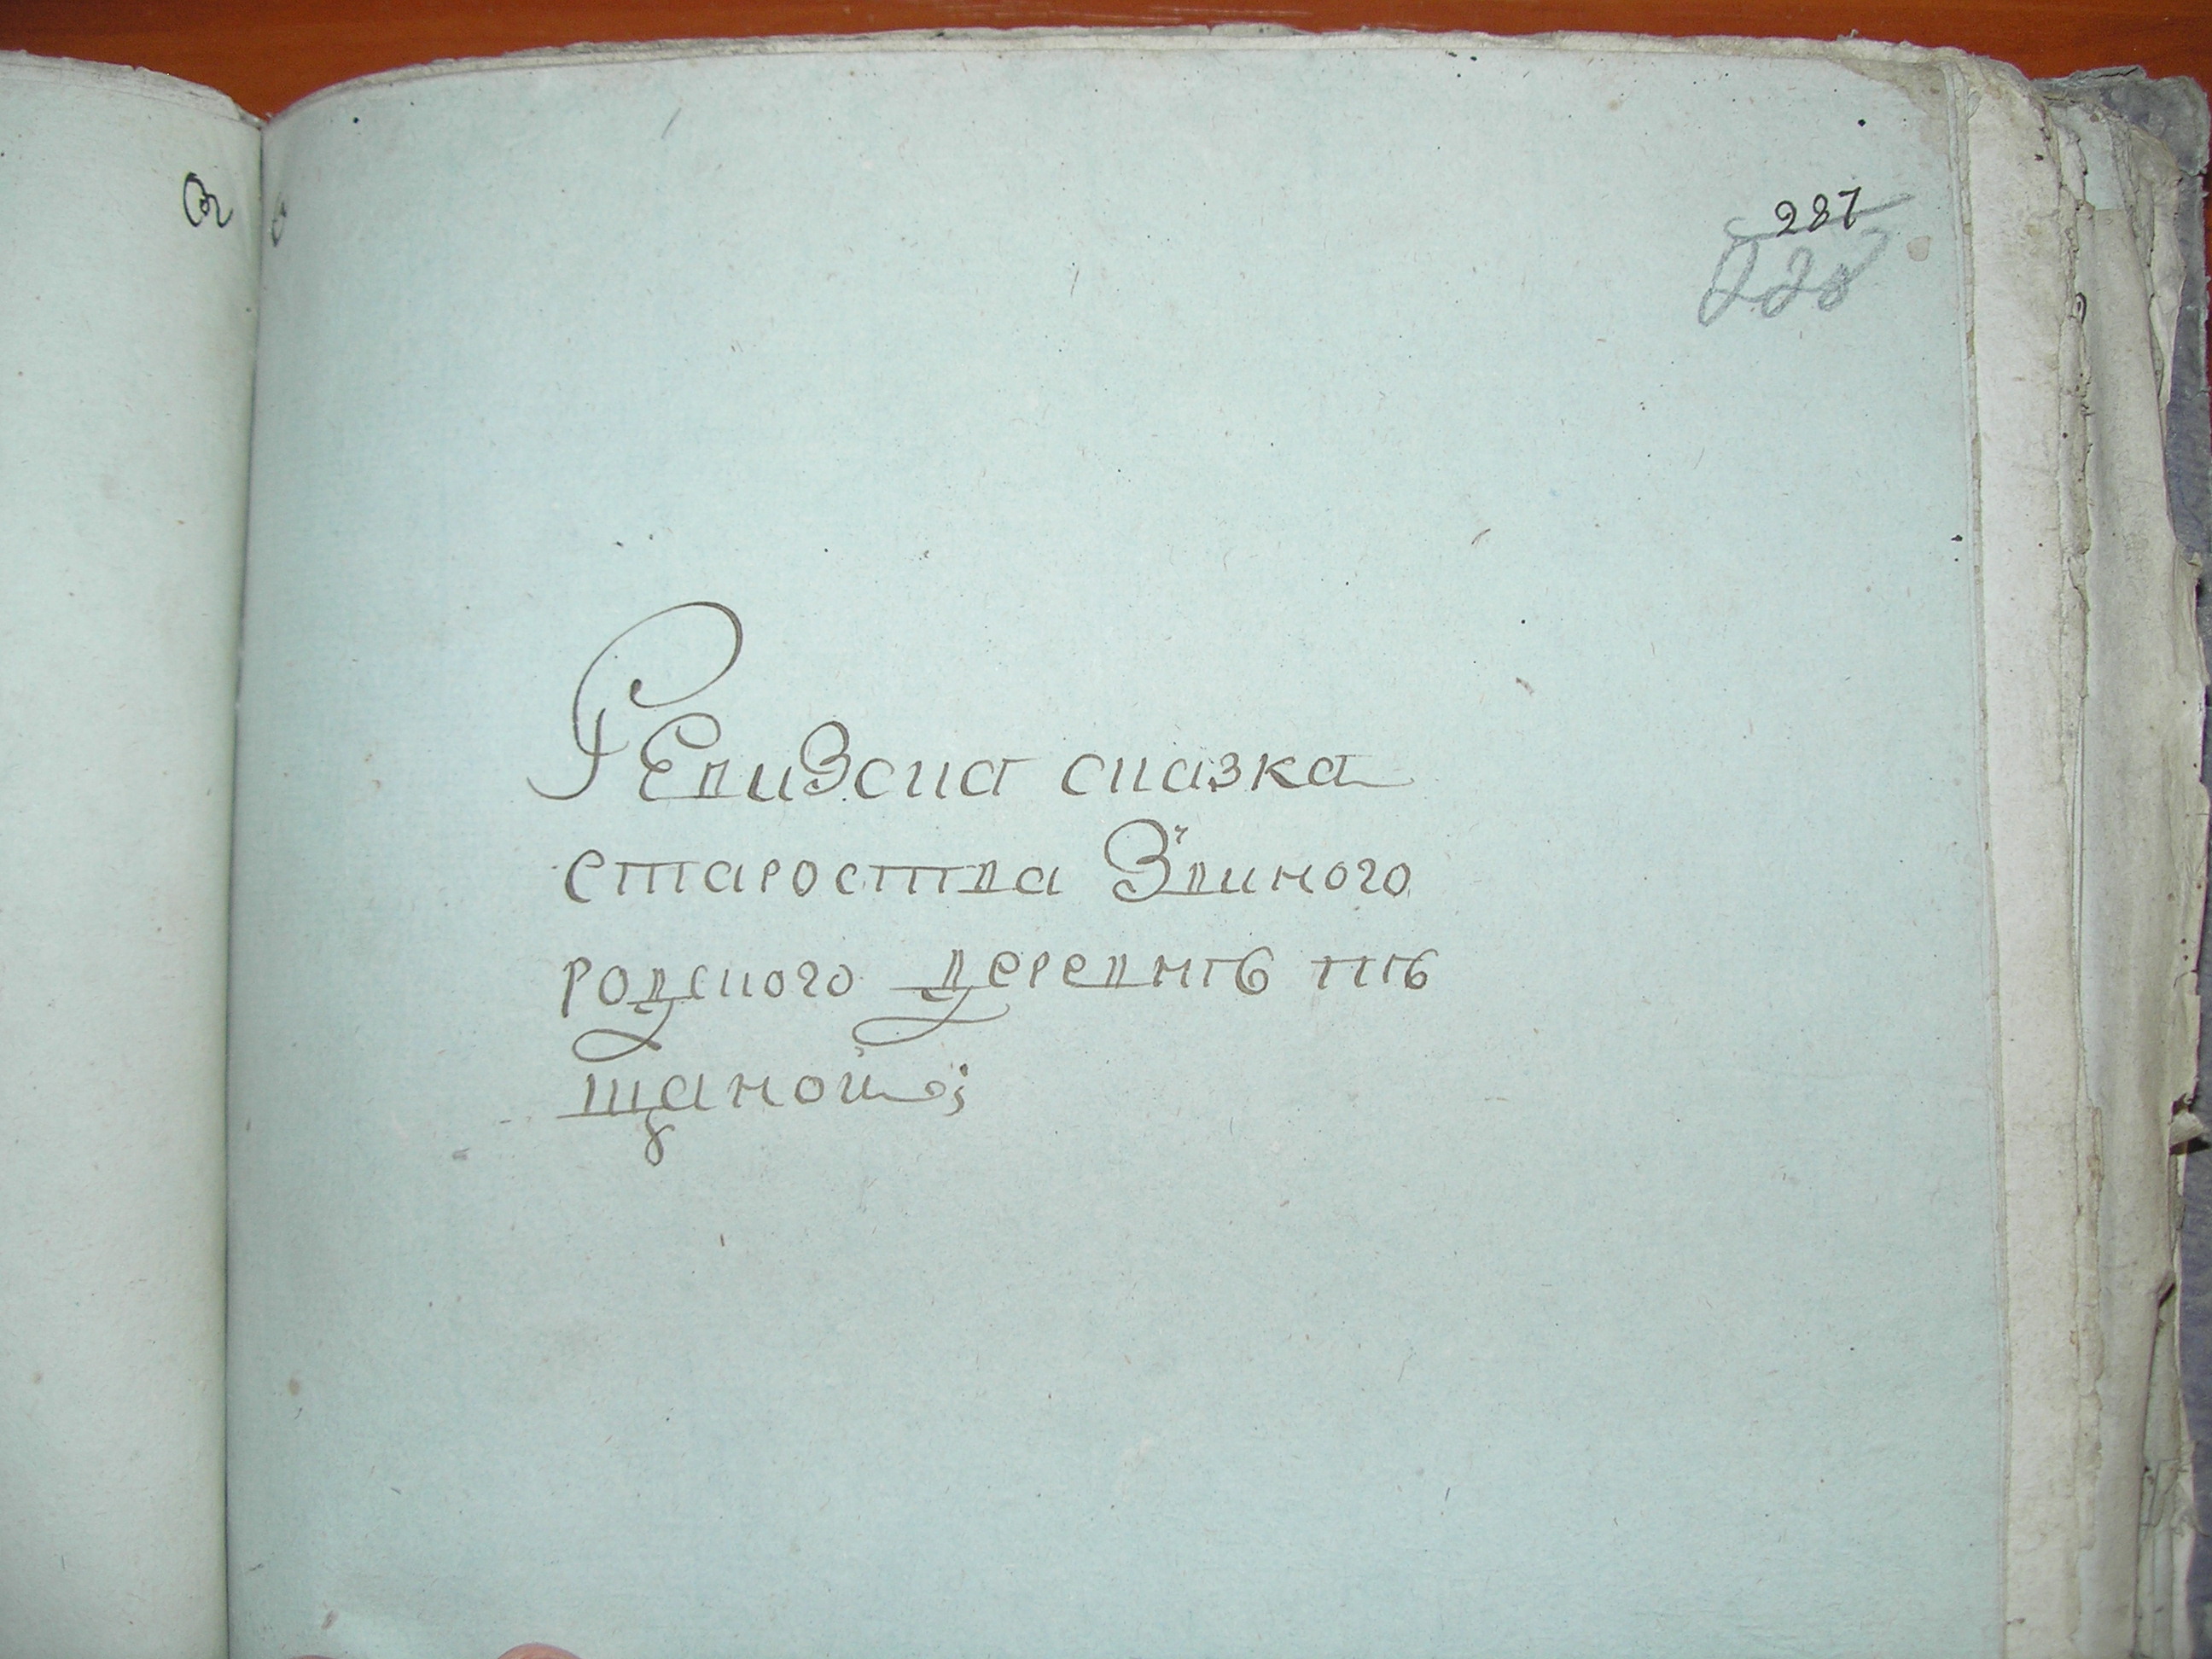 287
228
Ревизска сказка
староства Звиного
родского деревнѣ пѣ
щаной